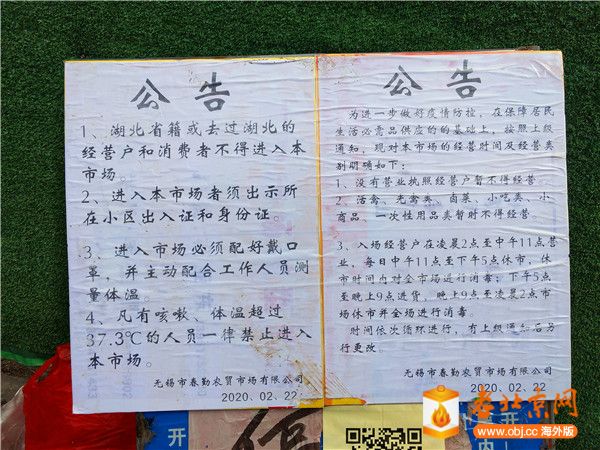 公告
1、湖北省籍或去过湖北的
经营户和消费者不得进入本
市场。
2、进入本市场者须出示所
在小区出入证和身份证。
3、进入市场必须配好戴口
罩，并主动配合工作人员测
量体温。
4、凡有咳嗽、体温超过
37.3℃的人员一律禁止进入
本市场。
无锡市春勤农贸市场有限公司
2020、02、22
公告
为进一步做好疫情防控，在保障居民
生活必需品供应的的基础上，按照上级
通知，现对本市场的经营时间及经营类
别明确如下：
1、没有营业执照经营户暂不得经营。
2、活禽、光禽类、卤菜、小吃类、小
商品、一次性用品类暂时不得经营。
3、入场经营户在凌晨2点至中午11点营
业，每日中午11点至下午5点休市，休
市时间内对全市场进行消毒；下午5点
至晚上9点进货，晚上9点至凌晨2点市
场休市并全场进行消毒。
时间依次循环进行，有上级通知后另
行更改。
无锡市春勤农贸市场有限公司
2020、02、22
开
开
内
老北京网
www.obj.cc 海外版